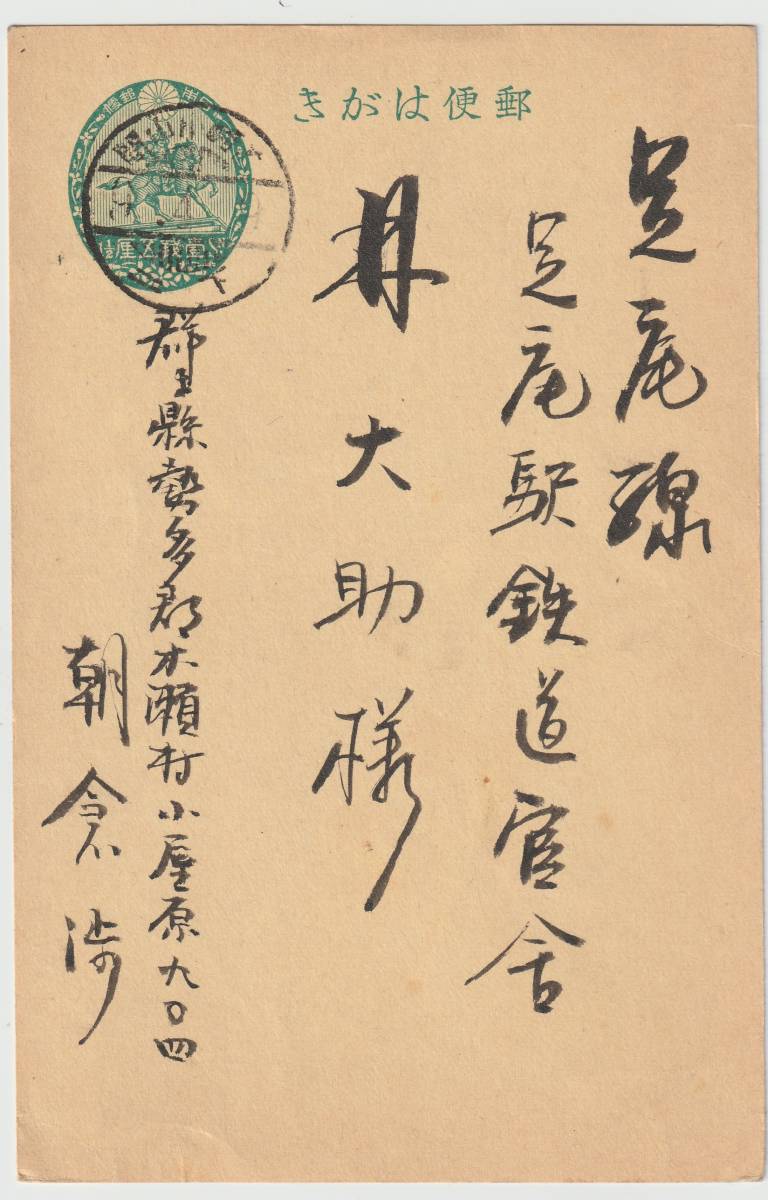 郵便はがき
足尾線
足尾駅鉄道官舎
林大助様
群馬縣勢多郡木瀬村小屋原九〇四
朝倉渉
壹錢五厘